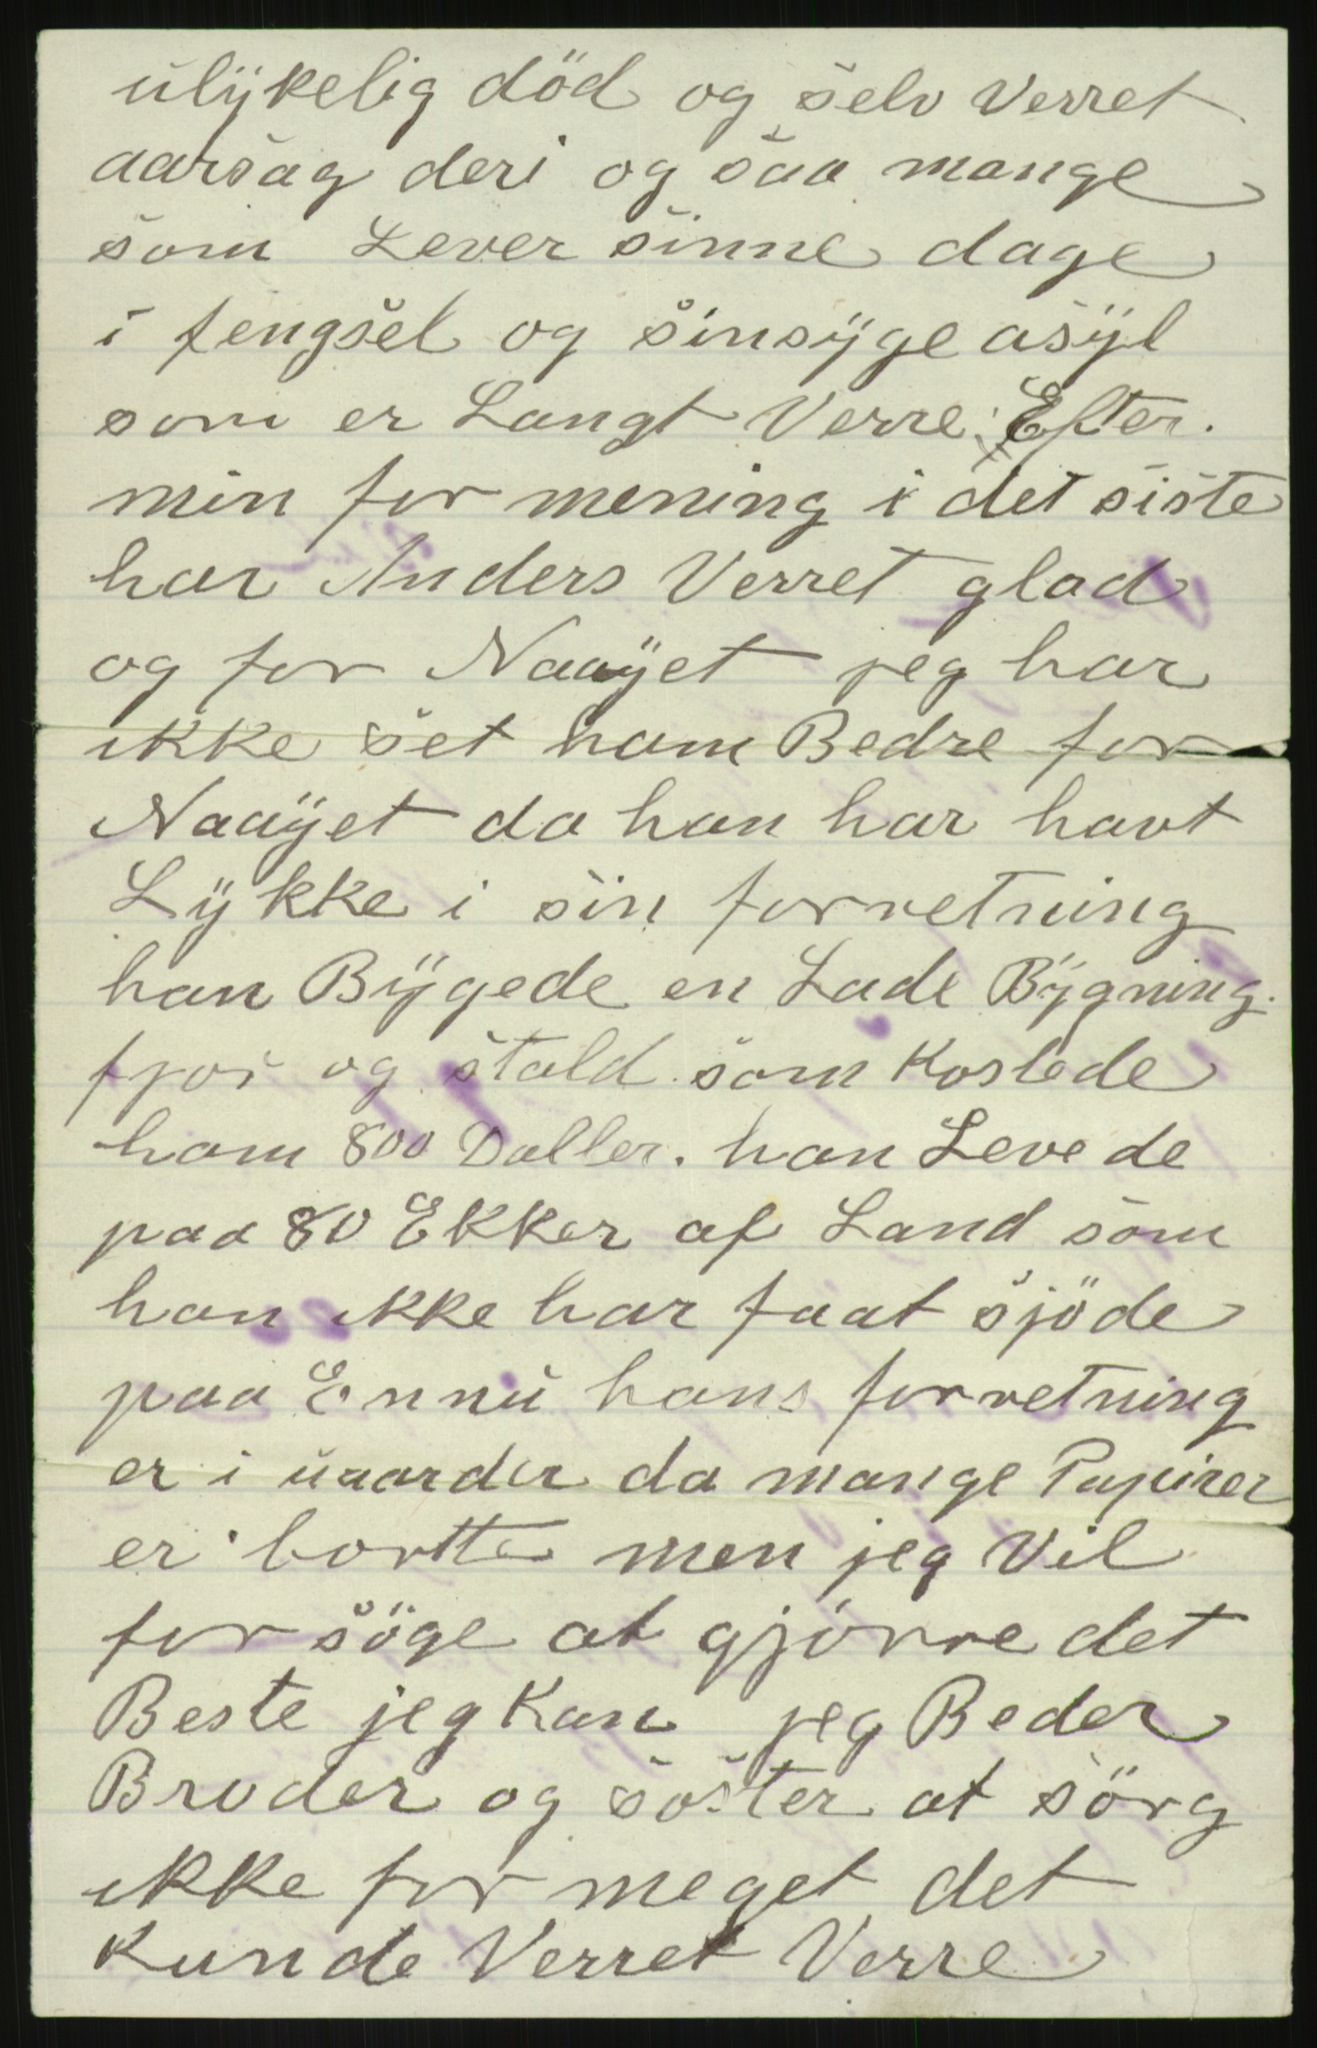 ulykelig död og selv Verret
aarsag deri og saa mange
som Lever sinne dage
i fengsel og sinsyge asyl
som er Langt Verre. Efter.
min for mening i det siste
har Anders Verret glad
og for Naayet jeg har
ikke set ham Bedre for
Naayet da han har havt
Lykke i sin forretning
han Bygede en Lade Bygning.
fjos og stald som Kostede
ham 800 Daller. han Levede
paa 80 Ekker af Land som
han ikke har faat sjöde
paa Ennu hans forretning
er i uaarder da mange Papirer
er bortte men jeg Vil
for söge at gjörre det
Beste jeg Kan jeg Beder
Broder og söster at sörg
ikke for meget det
Kunde Verret Verre